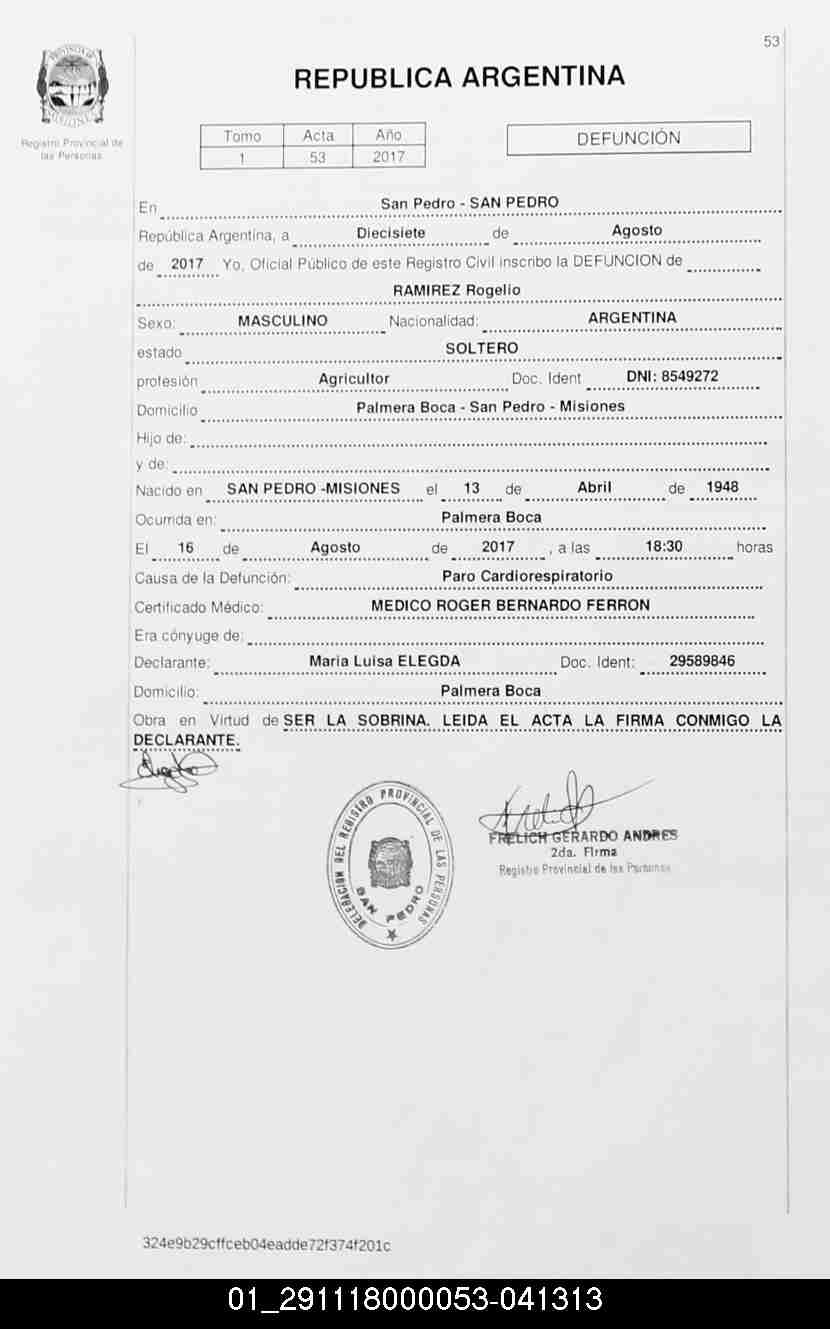 53
PROVINCIA DE MISIONES
Registro Provincial de
las Personas
REPUBLICA ARGENTINA
Tomo Acta Año
1 53 2017
DEFUNCIÓN
En San Pedro - SAN PEDRO
República Argentina, a Diecisiete de Agosto
de 2017 Yo, Oficial Público de este Registro Civil inscribo la DEFUNCION de
RAMIREZ Rogelio
Sexo: MASCULINO Nacionalidad: ARGENTINA
estado SOLTERO
profesión Agricultor Doc. Ident DNI: 8549272
Domicilio Palmera Boca - San Pedro - Misiones
Hijo de:
y de:
Nacido en SAN PEDRO -MISIONES el 13 de Abril de 1948
Ocurrida en: Palmera Boca
El 16 de Agosto de 2017 , a las 18:30 horas
Causa de la Defunción: Paro Cardiorespiratorio
Certificado Médico: MEDICO ROGER BERNARDO FERRON
Era cónyuge de:
Declarante: Maria Luisa ELEGDA Doc. Ident: 29589846
Domicilio: Palmera Boca
Obra en Virtud de SER LA SOBRINA. LEIDA EL ACTA LA FIRMA CONMIGO LA
DECLARANTE.
DELEGACION DEL REGISTRO PROVINCIAL DE LAS PERSONAS
SAN PEDRO
FRELICH GERARDO ANDRES
2da. Firma
Registro Provincial de las Personas
324e9b29cffceb04eadde72f374f201c
01_291118000053-041313